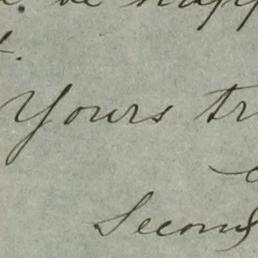 be happ
t.
Yours tr
Second